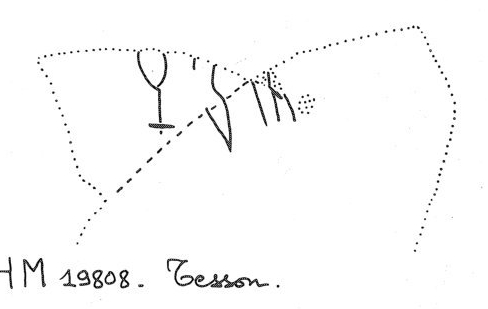 HM 19808. Tesson.